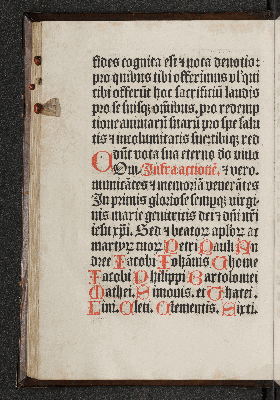 fides cognita est ⁊ nota deuotio:
pro quibus tibi offerimus vl' qui
tibi offerūt hoc sacrificiū laudis
pro se suisq; oībus. pro redemp
tione animarū suarū pro spe salu
tis ⁊ incolumitatis sue tibiq; red
dūt vota sua eterno deo viuo
Om̄. Infra actionē. ⁊ vero.
municātes ⁊ memoriā venerātes
In primis gloriose semperq; virgi
nis marie genitricis dei ⁊ dn̄i nr̄i
iesu xp̄i. Sed ⁊ beatorꝝ aplorꝝ ac
martyrꝝ tuorꝝ Petri Pauli An
dree Iacobi Iohānis Thome
Iacobi Philippi Bartolomei
Mathei. Simonis. et Thatei.
Lini. Cleti. Clementis. Sixti.